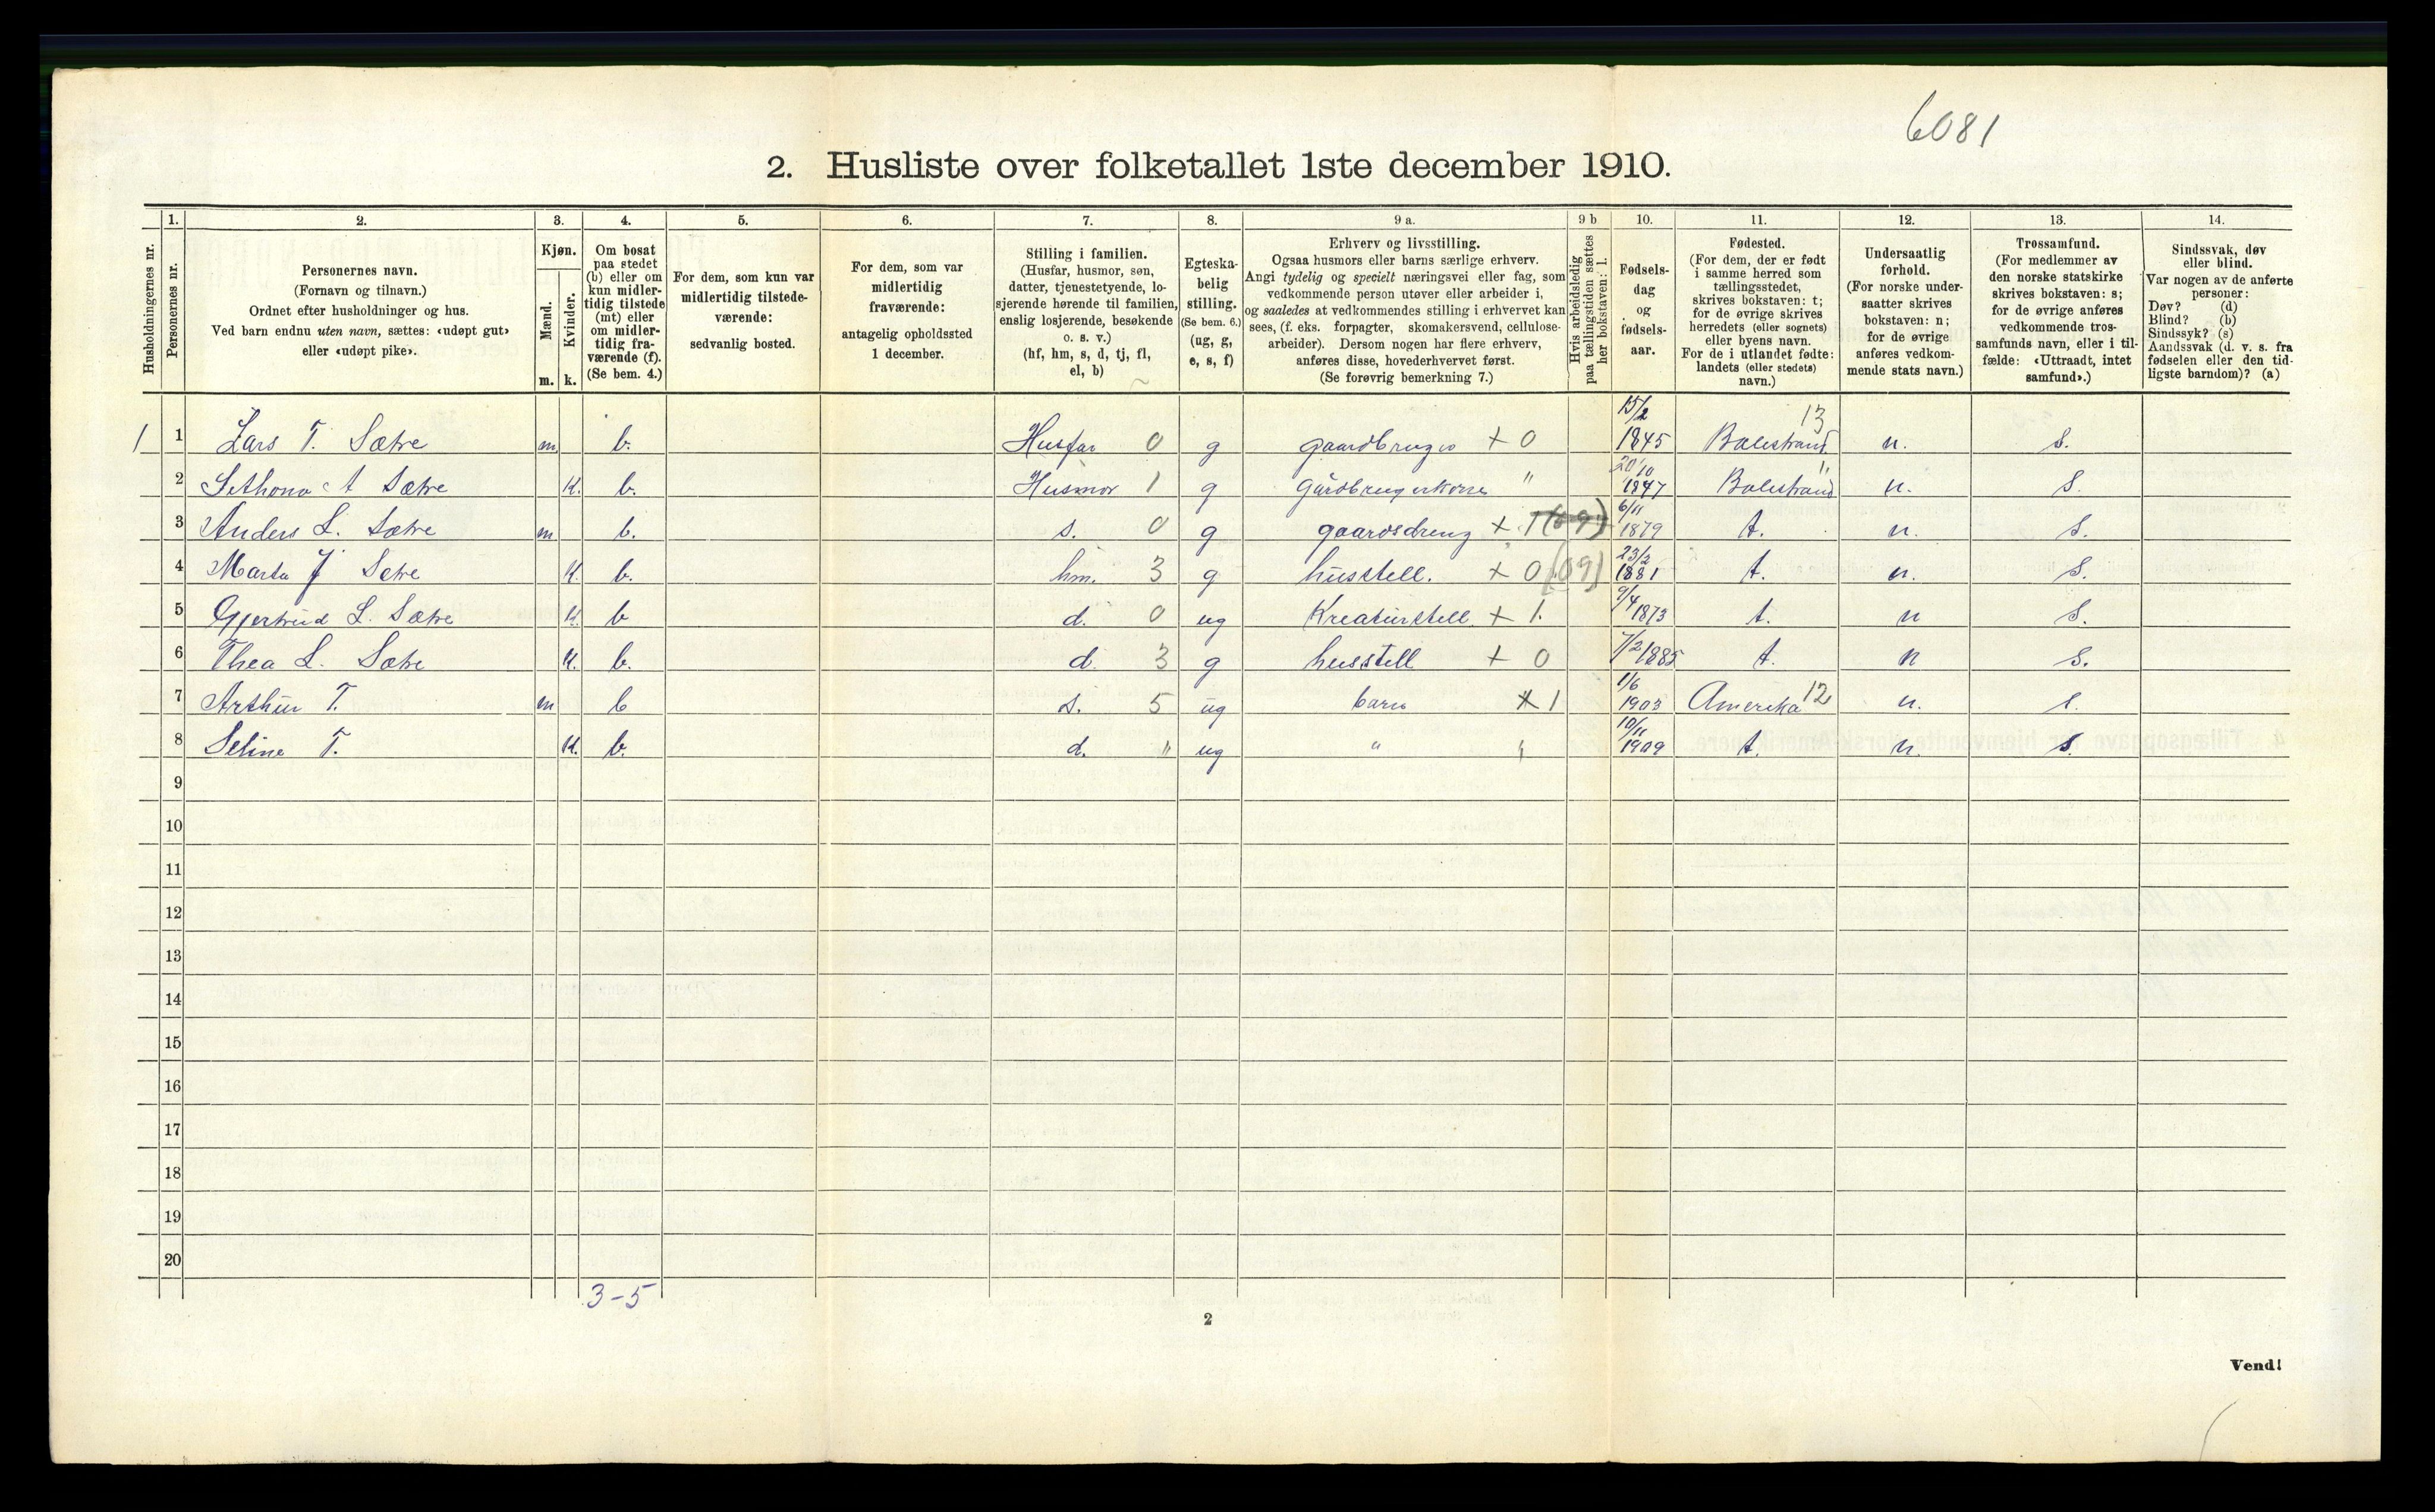 6081
2. Husliste over folketallet 1ste december 1910.
Husholdningernes nr.
1.
Personernes nr.
2.
Personernes navn.
(Fornavn og tilnavn.)
Ordnet efter husholdninger og hus.
Ved barn endnu uten navn, sættes: «udøpt gut»
eller «udøpt pike».
3.
Kjøn.
Mænd.
Kvinder.
m. k.
4.
Om bosat
paa stedet
(b) eller om
kun midler-
tidig tilstede
(mt) eller
om midler-
tidig fra-
værende (f).
(Se bem. 4.)
5.
For dem, som kun var
midlertidig tilstede-
værende:
sedvanlig bosted.
6.
For dem, som var
midlertidig
fraværende:
antagelig opholdssted
1 december.
7.
Stilling i familien.
(Husfar, husmor, søn,
datter, tjenestetyende, lo-
sjerende hørende til familien,
enslig losjerende, besøkende
o. s. v.)
(hf, hm, s, d, tj, fl,
el, b)
8.
Egteska-
belig
stilling.
(Se bem. 6.)
(ug, g,
e, s, f)
9 a.
Erhverv og livsstilling.
Ogsaa husmors eller barns særlige erhverv.
Angi tydelig og specielt næringsvei eller fag, som
vedkommende person utøver eller arbeider i,
og saaledes at vedkommendes stilling i erhvervet kan
sees, (f. eks. forpagter, skomakersvend, cellulose-
arbeider). Dersom nogen har flere erhverv,
anføres disse, hovederhvervet først.
(Se forøvrig bemerkning 7.)
9 b
Hvis arbeidsledig
paa tællingstiden sættes
her bokstaven: l.
10.
Fødsels-
dag
og
fødsels-
aar.
11.
Fødested.
(For dem, der er født
i samme herred som
tællingsstedet,
skrives bokstaven: t;
for de øvrige skrives
herredets (eller sognets)
eller byens navn.
For de i utlandet fødte:
landets (eller stedets)
navn.)
12.
Undersaatlig
forhold.
(For norske under-
saatter skrives
bokstaven: n;
for de øvrige
anføres vedkom-
mende stats navn.)
13.
Trossamfund.
(For medlemmer av
den norske statskirke
skrives bokstaven: s;
for de øvrige anføres
vedkommende tros-
samfunds navn, eller i til-
fælde: «Uttraadt, intet
samfund».)
14.
Sindssvak, døv
eller blind.
Var nogen av de anførte
personer:
Døv? (d)
Blind? (b)
Sindssyk? (s)
Aandssvak (d. v. s. fra
fødselen eller den tid-
ligste barndom)? (a)
1 1 Lars T. Sætre m b. Husfar 0 g gaardbruger + 0 15/2 1845 Balestrand 13 n. s.
2 A Sætre K. b. Husmor 1 g gårdbrugerkone " 20/10 1847 Balestrand " n. s.
3 Anders L. Sætre m b. s. 0 g gaardsdreng + 1 (09) 6/11 1879 t. n. s.
4 Marta J Setre K. b. hm. 3 g husstell. + 0 (09) 23/2 1881 t. n. s.
5 Gjertrud L. Sætre K. b d. 0 ug Kreaturstell + 1. 9/4 1873 t. n s.
6 Thea L. Sætre K. b. d. 3 g husstell + 0 7/2 1885 t. n s.
7 Arthur T. m b s. 5 ug barn + 1 1/6 1903 Amerika 12 n. s.
8 Seline T. K. b. d. " ug " " 10/11 1909 t. n. s.
9
10
11
12
13
14
15
16
17
18
19
20
3-5
2
Vend!